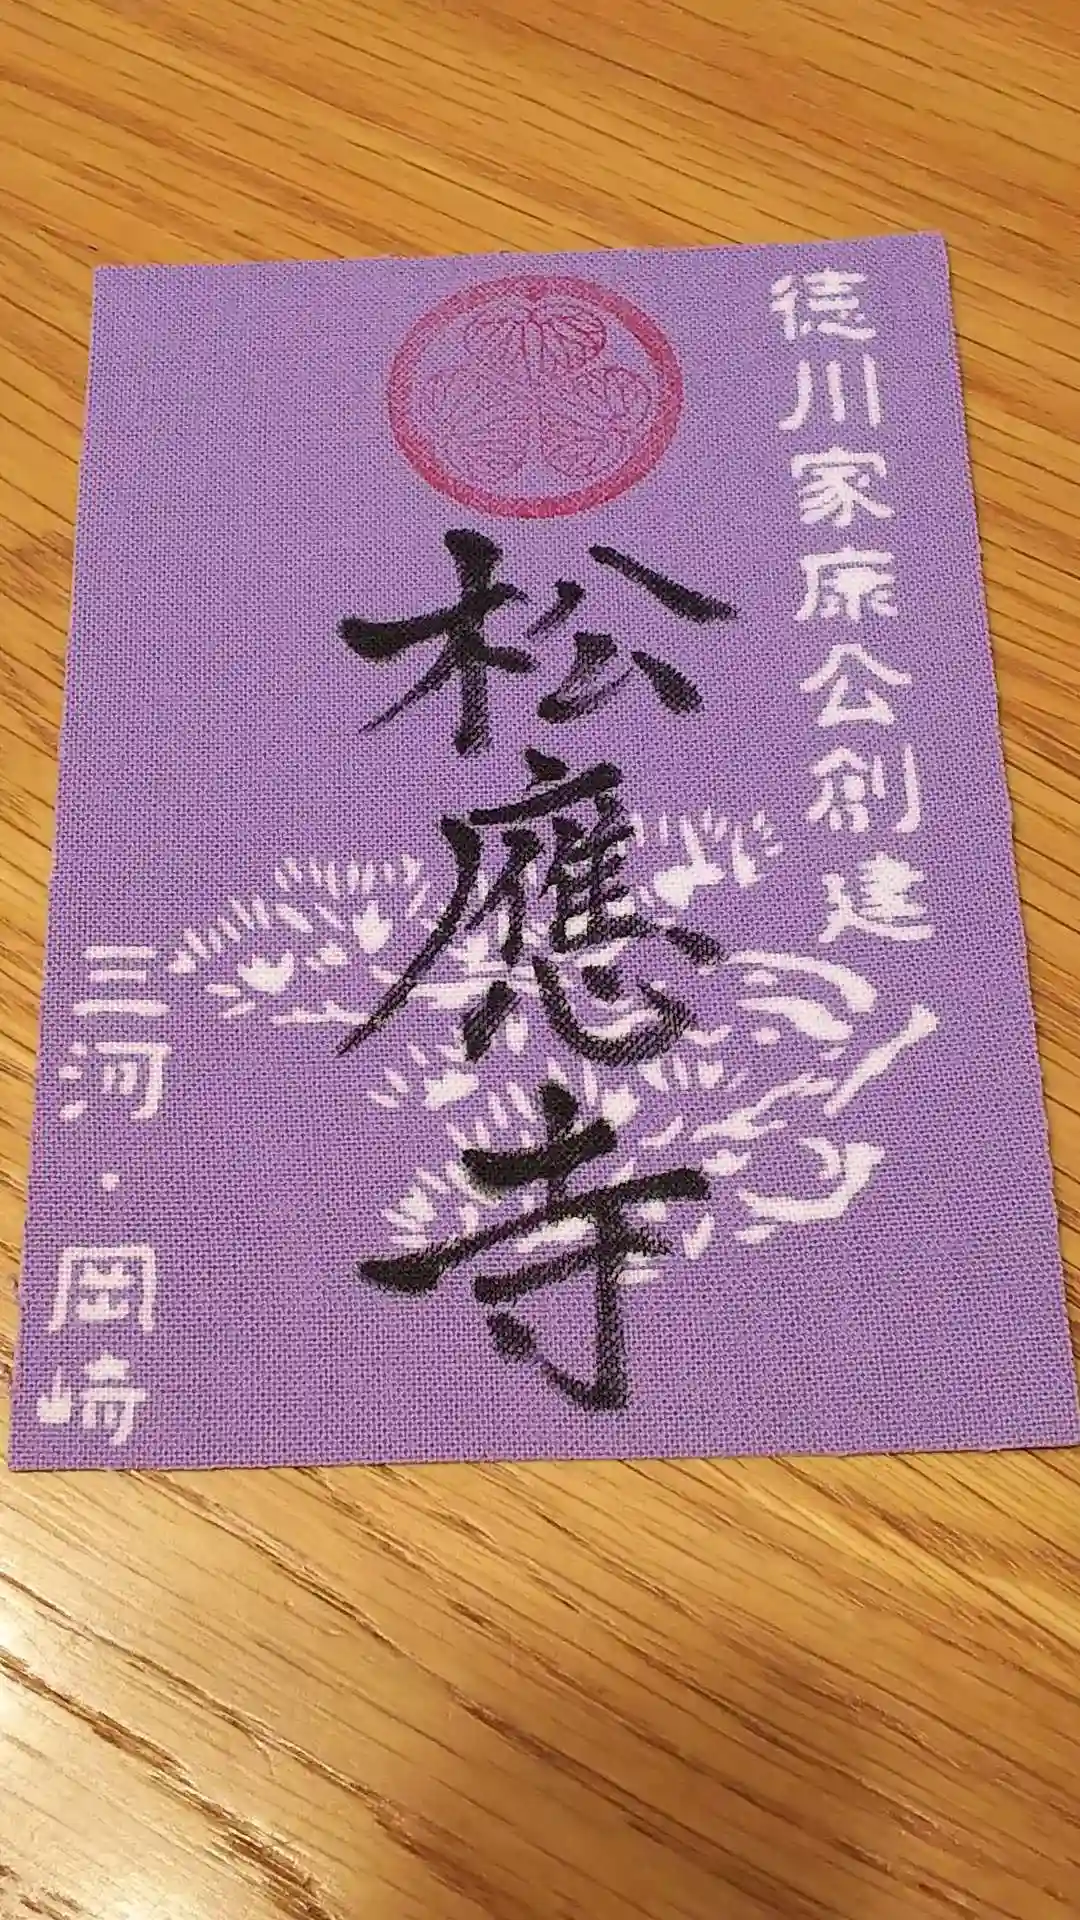 徳川家康公創建
松應寺
三河・岡崎